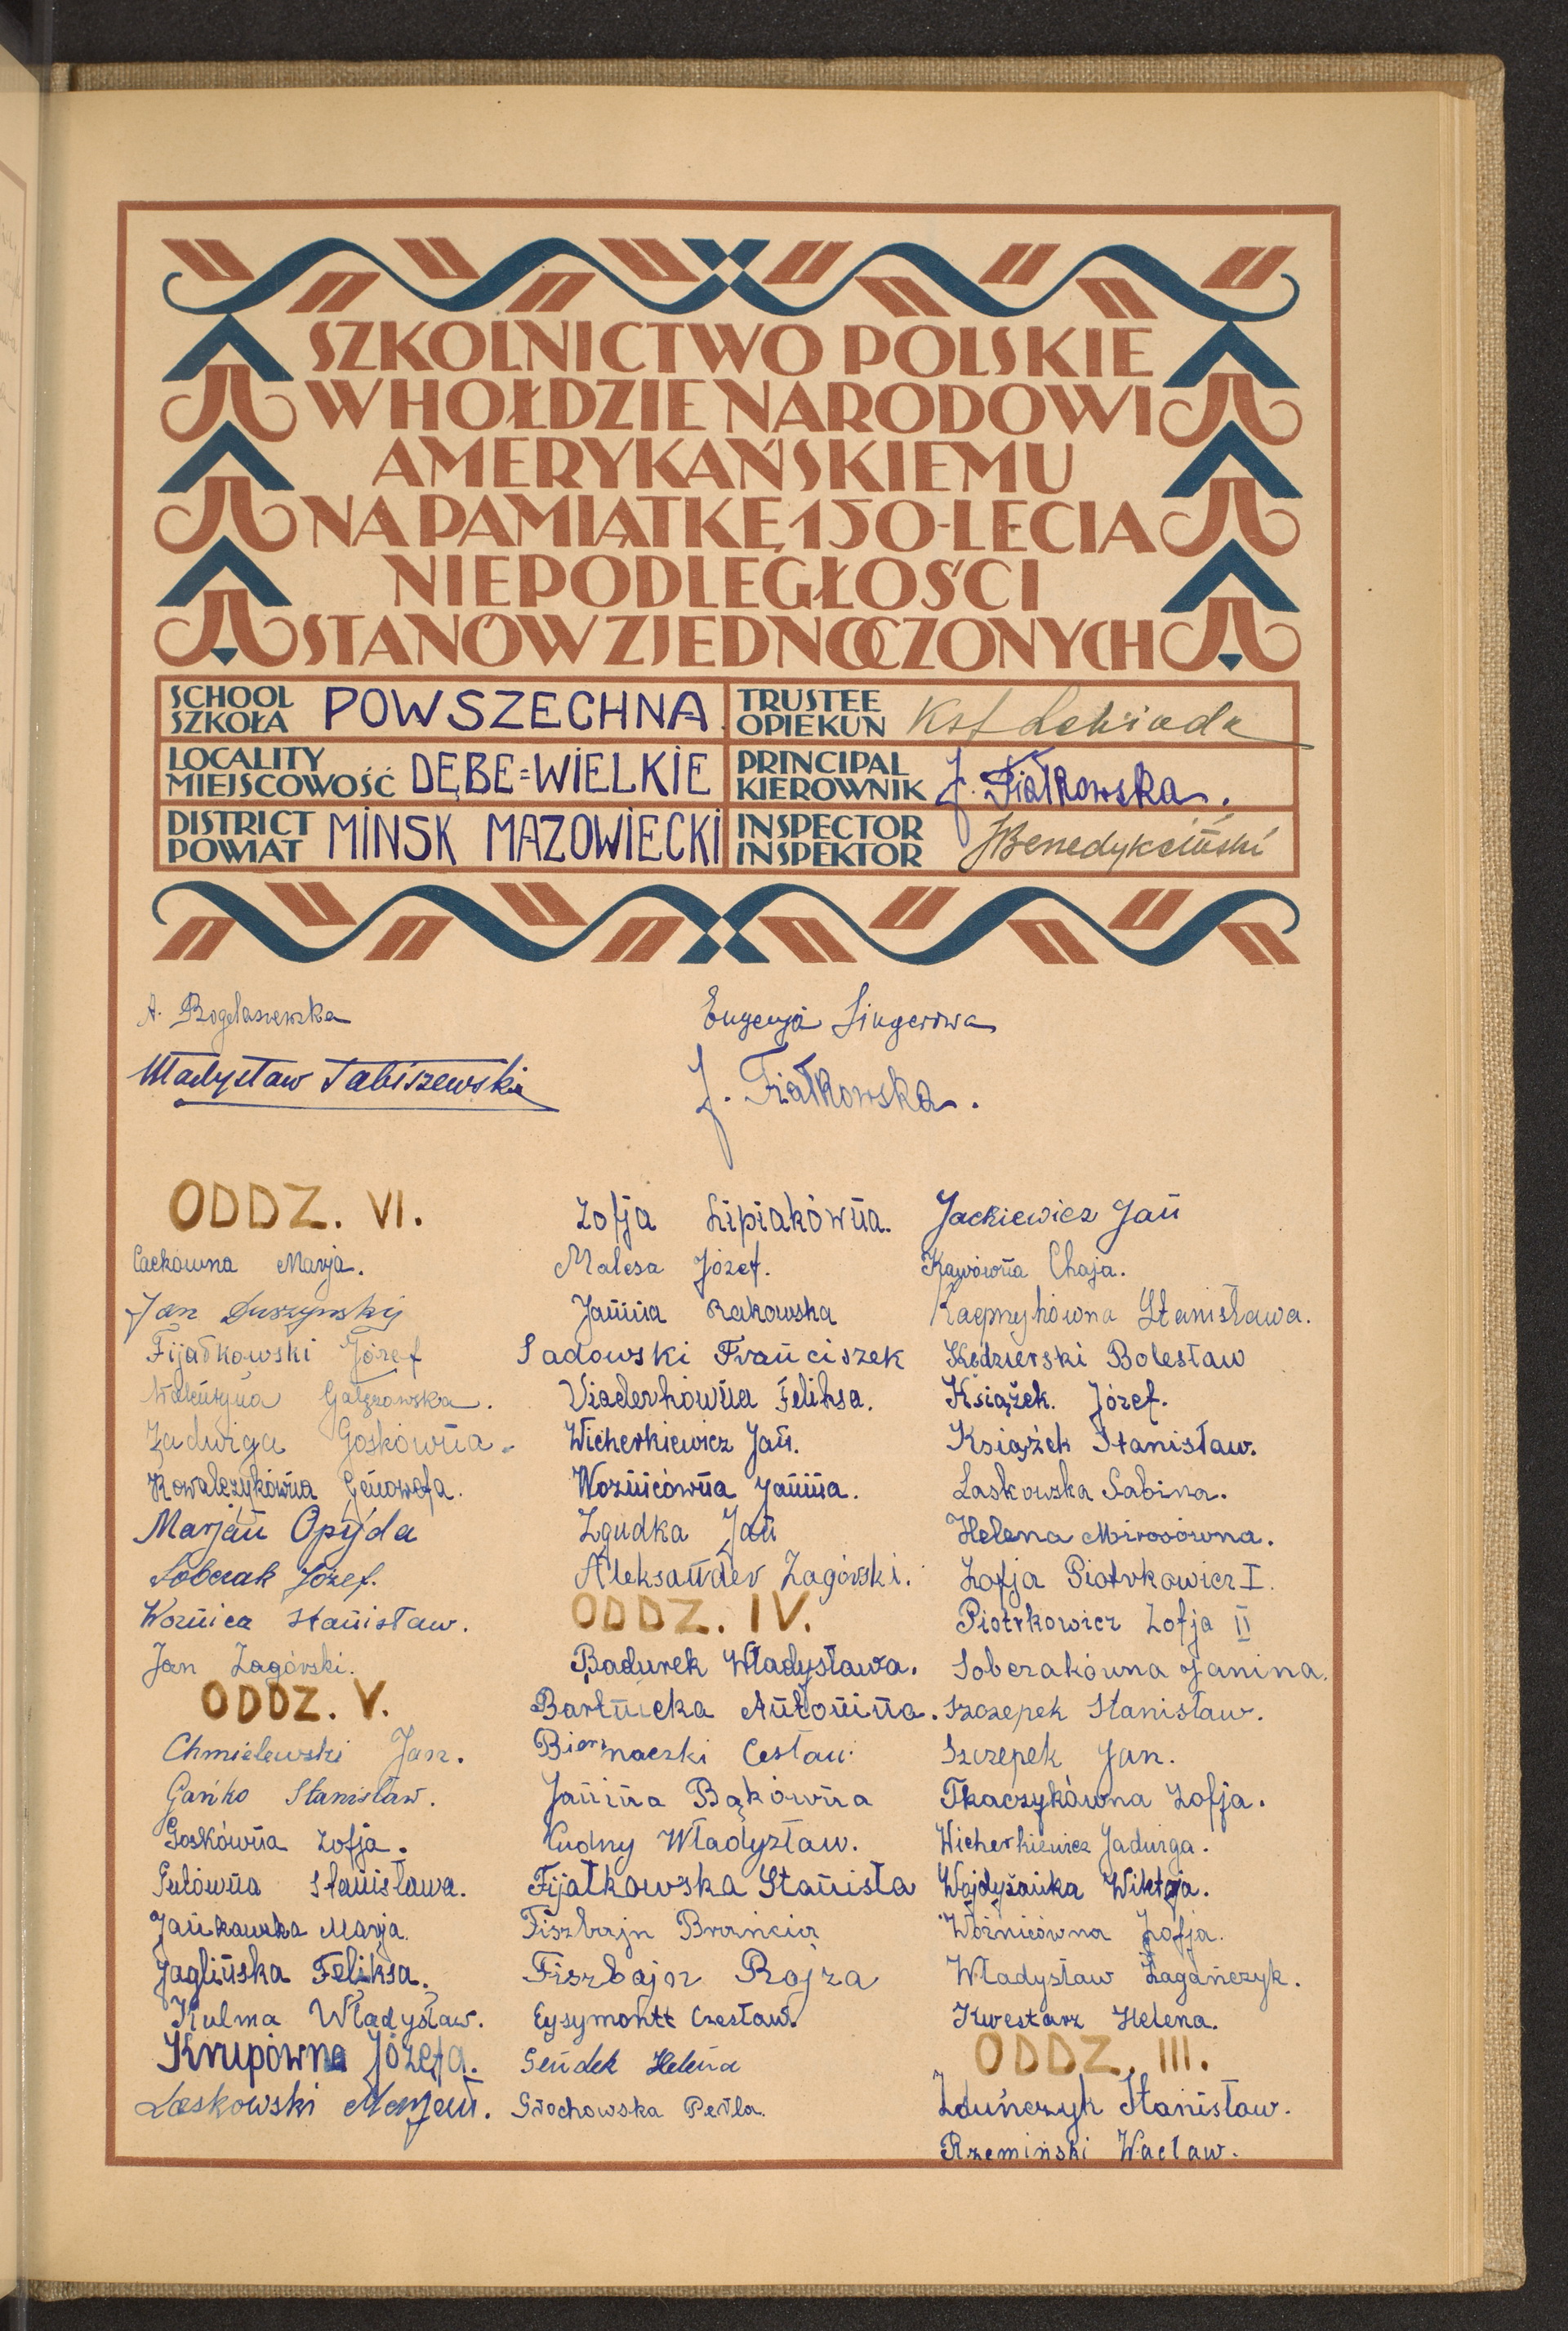 SZKOLNICTWO POLSKIE
W HOŁDZIE NARODOWI
AMERYKAŃSKIEMU
NA PAMIĄTKĘ 150-LECIA
NIEPODLEGŁOŚCI
STANÓW ZJEDNOCZONYCH
SCHOOL
SZKOŁA POWSZECHNA
TRUSTEE
OPIEKUN
LOCALITY
MIEJSCOWOŚĆ DĘBE=WIELKIE
PRINCIPAL
KIEROWNIK J. Fiałkowska.
DISTRICT
POWIAT MIŃSK MAZOWIECKI
INSPECTOR
INSPEKTOR
A.
Eugenja Singerowa
Władysław Tabiszewski
J. Fiałkowska.
ODDZ. VI.
Cackówna Marja.
Jan Duszynski
Fijałkowski Józef
Walentyna Gałązowska.
Jadwiga Goskówna.
Kowalczykówna Genowefa.
Marjan Opijda
Sobczak Józef.
Woznica Stanisław.
Jan Zagórski.
ODDZ. V.
Chmielewski Jan.
Gańko Stanisław.
Goskówna Zofja.
Gutówna Stanisława.
Jankowska Marja.
Jaglińska Feliksa.
Kulma Władysław.
Krupówna Józefa.
Laskowski Marjan.
Zofja Lipiakówna.
Malesa Józef.
Janina Rakowska
Sadowski Franciszek
Viaderkówna Feliksa.
Wicherkiewicz Jan.
Woznicówna Janina.
Zgudka Jan
Aleksander Zagórski.
ODDZ. IV.
Badurek Władysława.
Bartnicka Antonina.
Biernaczki Cesław.
Janina Bąkówna
Cudny Władyzław.
Fijałkowska Stanisła
Fiszbajn Brańcia
Fiszbajn Rojza
Eysymontt Czesław.
Gendek Helena
Grochowska Perla.
Jackiewicz Jan
Kawówna Chaja.
Kacprzykówna Stanisława.
Kędzierski Bolesław
Książek. Józef.
Książek Stanisław.
Laskowska Sabina.
Helena Mirosówna.
Zofja Piotrkowicz I.
Piotrkowicz Zofja II
Sobczakówna Janina.
Szczepek Stanisław.
Szczepek Jan.
Tkaczykówna Zofja.
Wicherkiewicz Jadwiga.
Wojdyżanka Wiktoja.
Wóźnicówna Zofja.
Władysław Zagańczyk.
Kwestarz Helena.
ODDZ. III.
Zduńczyk Stanisław.
Rzemiński Wacław.